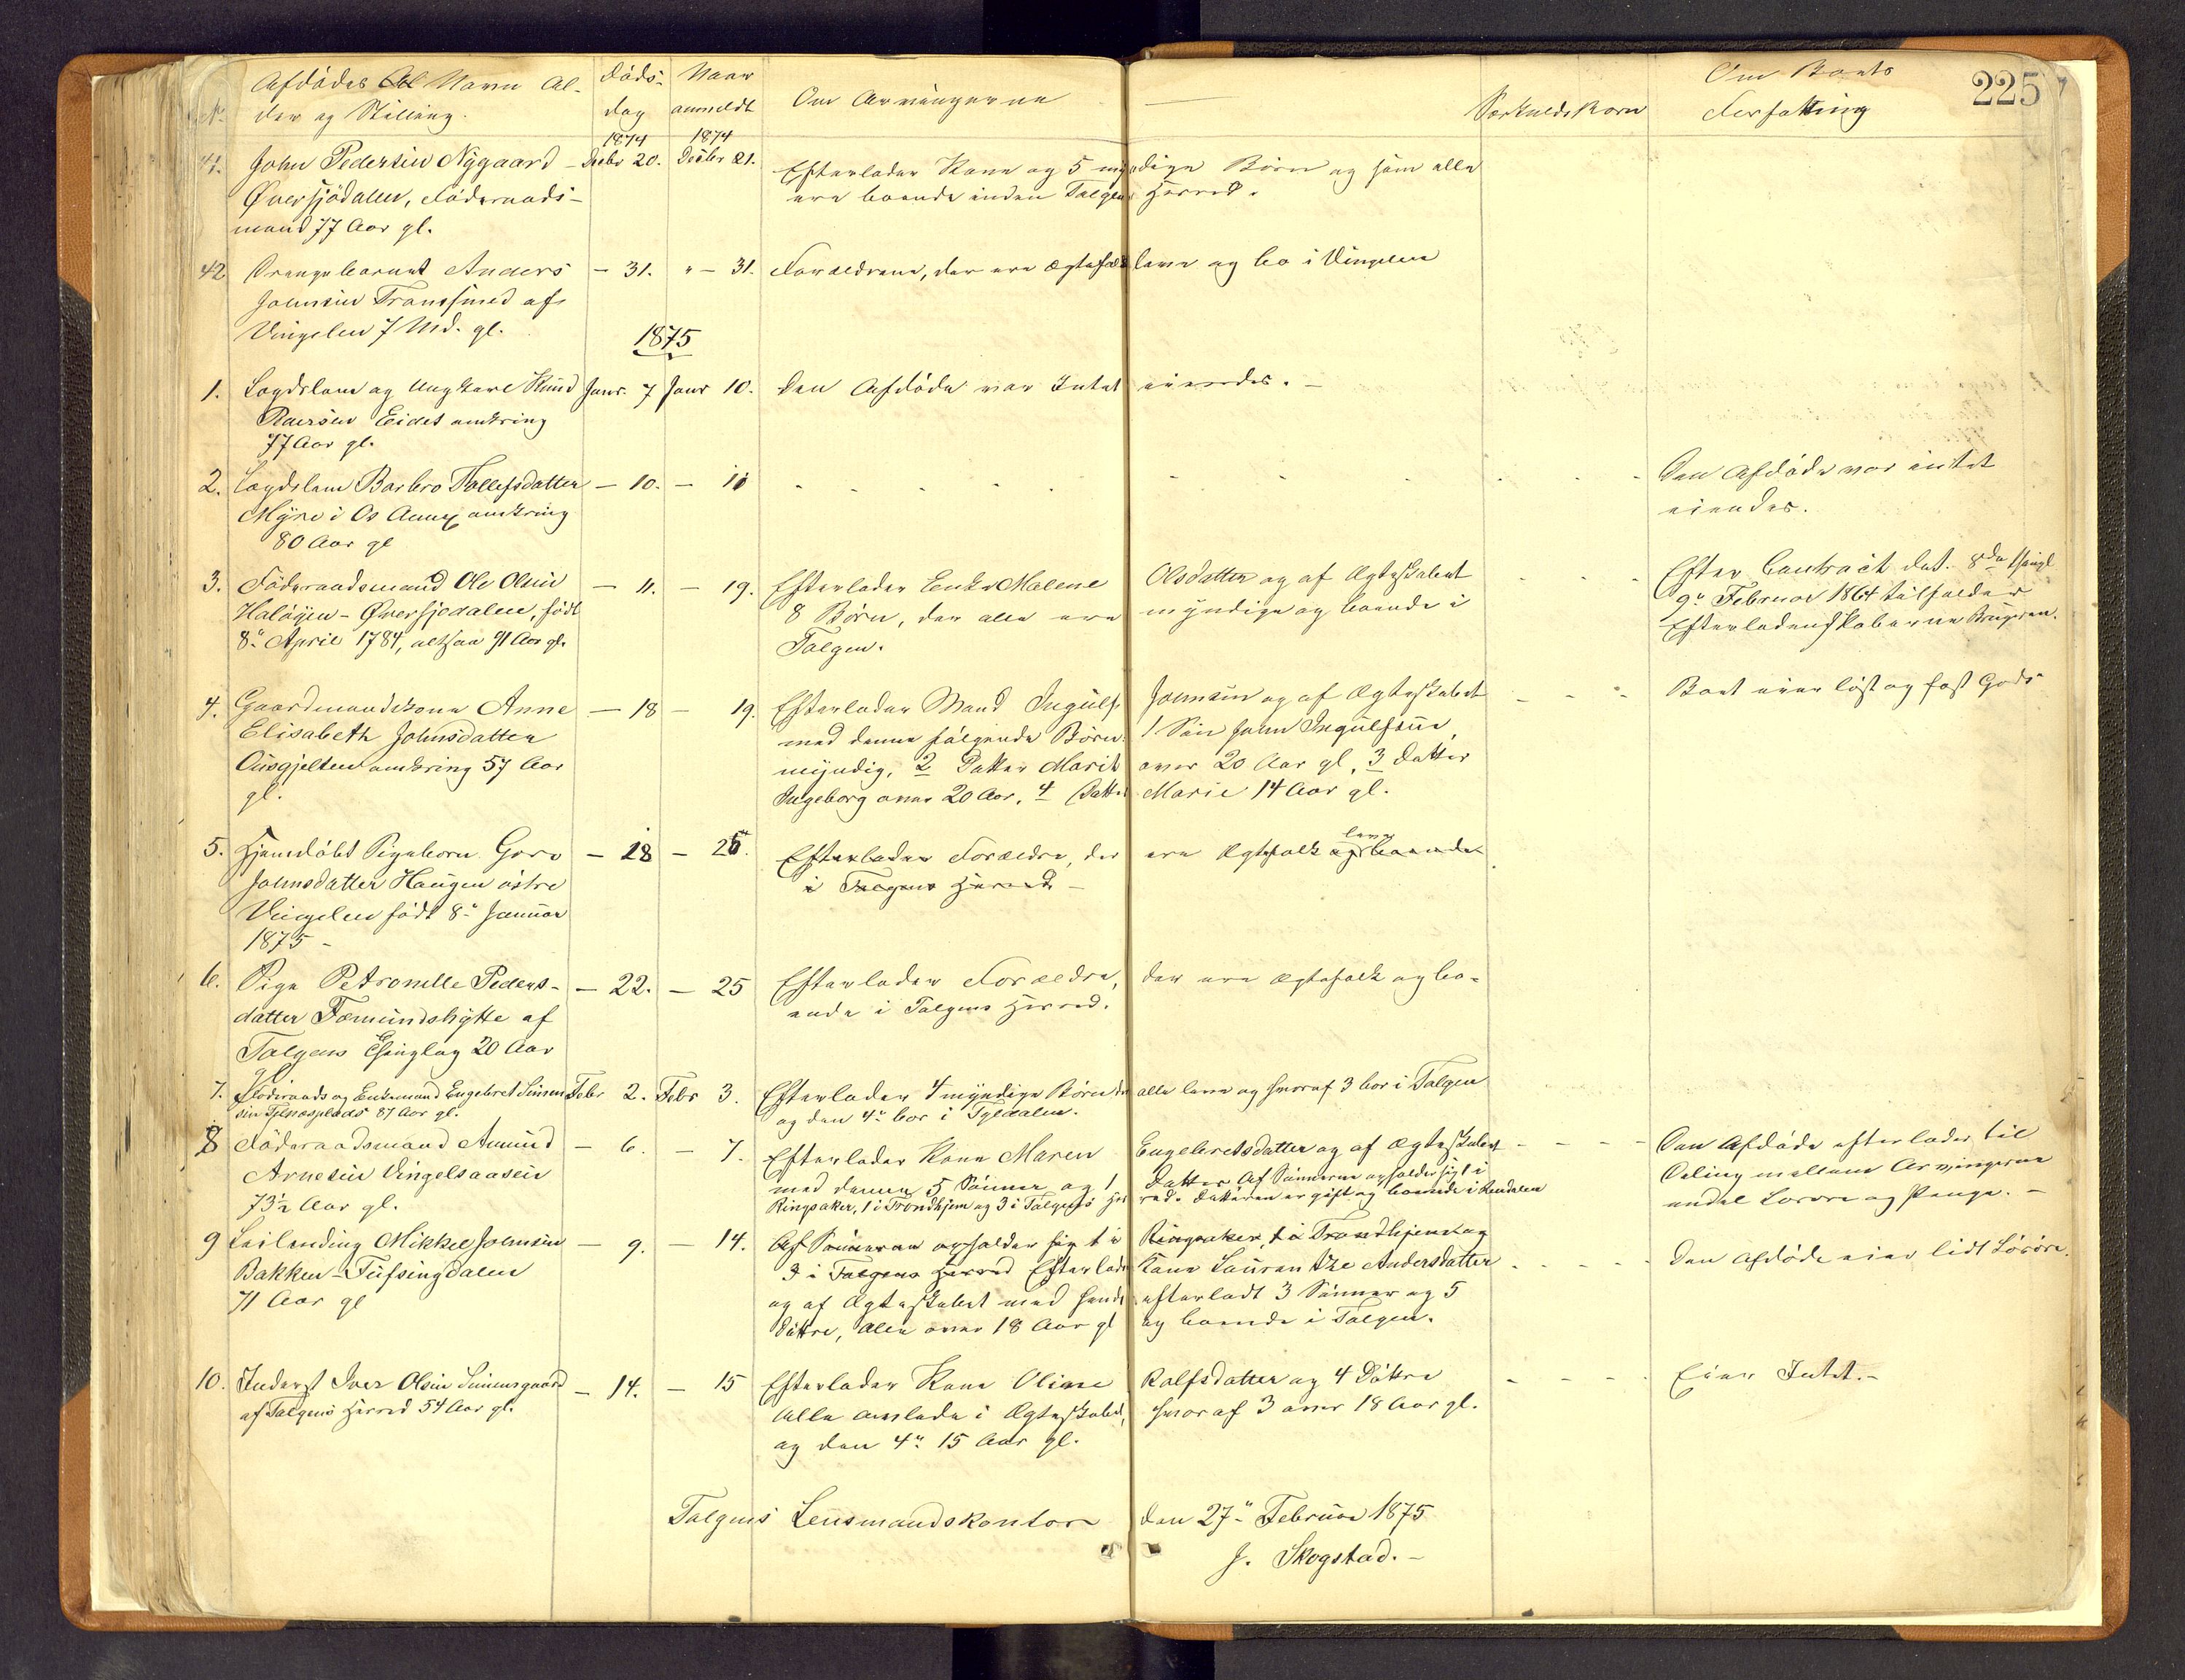 225
Afdødes Navn Al- Døds- Naar Om Arvingerne Særkuldsbørn Om Boets
No. der og Stilling. dag anmeldt Forfatning
1874 1874
41. John Pedersen Nygaard Decbr 20. Decbr 21. Efterlader Kone og 5 myndige Børn og som alle
Øversjødalen, Føderaads- ere boende inden Tolgens Herred.
mand 77 Aar gl.
42 Drengebarnet Anders — 31. " — 31. Forældrene, der ere Ægtefolk leve og bo i Vingelen
Johnsen Transmed af
Vingelen 7 Md. gl.
1875
1. Lægdslem og Ungkarl Knud Janr. 7 Janr 10. Den Afdøde var Intet eiendes. —
Eidet omkring
77 Aar gl.
2. Lægdslem Barbro Tollefsdatter — 10. — 10 Den Afdøde var intet
Myre i Os Annex omkring eiendes.
80 Aar gl
3. Føderaadsmand Ole Olsen — 11. — 19. Efterlader Enke Malene Olsdatter og af Ægteskabet Efter Contract dat. 8de thingl
Haløyen - Øversjødalen, født 8 Børn, der alle ere myndige og boende i 9n Februar 1864 tilfalder
8n April 1784, altsaa 91 Aar gl. Tolgen. Efterladenskaberne Brugeren.
4. Gaardmandskone Anne — 18 — 19. Efterlader Mand Ingulf Johnsen og af Ægteskabet Boet eier løst og fast Gods
Elisabeth Johnsdatter med denne følgende Børn: 1 Søn John Ingulfsen,
omkring 57 Aar myndig, 2 Datter Marit over 20 Aar gl, 3 Datter
gl. Ingeborg over 20 Aar, 4 Datter Marie 14 Aar gl.
5. Hjemdøbt Pigebarn Goro — 18 — 25. Efterlader Forældre, der ere Ægtefolk og boende leve
Johnsdatter Haugen østre i Tolgens Herred —
Vingelen født 8n Januar
1875 -
6. Pige Petronelle Peders- — 22. — 25 Efterlader Forældre, der ere Ægtefolk og bo-
datter Fæmundshytte af ende i Tolgens Herred.
Tolgens Thinglag 20 Aar
gl
7. Føderaads og Enkemand Engebret Simen Febr 2. Febr 3. Efterlader 4 myndige Børn der alle leve og hvoraf 3 bor i Tolgen
sen Telnesplads 87 Aar gl. og den 4n bor i Tyldalen.
8 Føderaadsmand Amund — 6. — 7. Efterlader Kone Maren Engebretsdatter og af Ægteskabet Den Afdøde efterlader til
Arnesen Vingelsaasen med denne 5 Sønner og 1 Datter Af Sønnerne opholder sig 1 i Deling mellem Arvingerne
73½ Aar gl. Ringsaker, 1 i Trondhjem og 3 i Tolgens Herred. Datteren er gift og boende i Rendalen endel Løsøre og Penge. —
9 Leilending Mikkel Johnsen — 9. — 14. Af Sønnerne opholder sig 1 i Ringsaker, 1 i Trondhjem og
Bakken - Tufsingdalen 3 i Tolgens Herred Efterlader Kone Laurentze Andersdatter Den Afdøde eier lidt Løsøre.
71 Aar gl og af Ægteskabet med hende efterladt 3 Sønner og 5
Døttre, alle over 18 Aar gl og boende i Tolgen.
10. Inderst Iver Olsen Simensgaard — 14. — 15 Efterlader Kone Oline Rolfsdatter og 4 Døttre Eier Intet. —
af Tolgens Herred 54 Aar gl. alle avlede i Ægteskabet, hvoraf 3 over 18 Aar gl.
og den 4n 15 Aar gl.
Tolgens Lensmandskontor den 27n Februar 1875
J. Skogstad. —